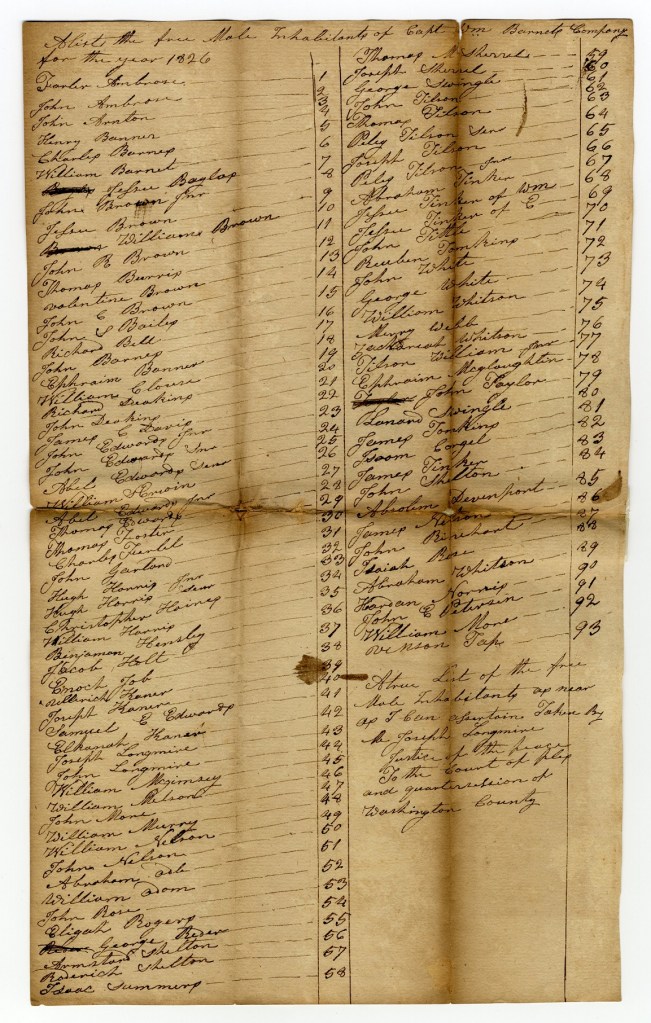 A list the free Male Inhabitants of Capt Wm Barnets Company
for the year 1826
Farler Ambrose 1
John Ambrose 2
John Arnton 3
Henry Banner 4
Charles Barnes 5
William Barnet 6
Jessee Baylas 7
John Brown Jnr 8
Jessee Brown 9
Williams Brown 10
John R Brown 11
Thomas Burris 12
Valentine Brown 13
John C Brown 14
John S Bailes 15
Richard Bell 16
John Barnes 17
Ephraim Banner 18
William Clouse 19
Richard Deakins 20
John Deakins 21
James C Davis 22
John Edwards Jnr 23
John Edwards Snr 24
Abel Edwards Senr 25
William Erwin 26
Abel Edwards Jnr 27
Thomas Edwards 28
Thomas Foster 29
Charles 30
John Garland 31
Hugh Harris Jnr 32
Hugh Harris Senr 33
Christopher Haines 34
William Harris 35
Benjaman Hensley 36
Jacob Holt 37
Enoch Job 38
Kaner 39
Joseph Kaner 40
Samuel E Edwards 41
Elkanah Kaner 42
Joseph Longmire 43
John Longmire 44
William Mcgimsey 45
William Melson 46
John More 47
William Murry 48
William Nelson 49
John Nelson 50
Abraham 51
William Odom 52
John Rose 53
Eligah Rogers 54
George Reser 55
Armstard Shelton 56
Roderich Shelton 57
Isaac Summers 58
Thomas McSherrel 59
Joseph Sherrel 60
George Swingle 61
John Tilson 62
Thomas Tilson 63
Peleg Tilson Senr 64
Joseph Tilson 65
Peleg Tilson Jnr 66
Abraham Tinker 67
Jessee Tinker of Wm 68
Jessee Tinker of E 69
John Tittle 70
Reuben Tomkins 71
John White 72
George White 73
William Whitson 74
Merry Webb 75
Zachareah Whitson 76
Tilson William Jnr 77
Ephraim Mcglaughlin 78
John Taylor 79
Lanard Swingle 80
James Tomkins 81
Isom Corgel 82
James Tinker 83
John Shelton 84
Abselem Devenport 85
James Nelson 86
John Rinehart 87
Isaiah Rose 88
Abraham Whitson 89
Harsan Norris 90
John E Petersin 91
William More 92
Vinson Tap 93
A true List of the free
Male Inhabitants as near
as I Can asertain Taken By
Me Joseph Longmire
Justice of the peace
To the Court of pleas
and quartersession of
Washington County